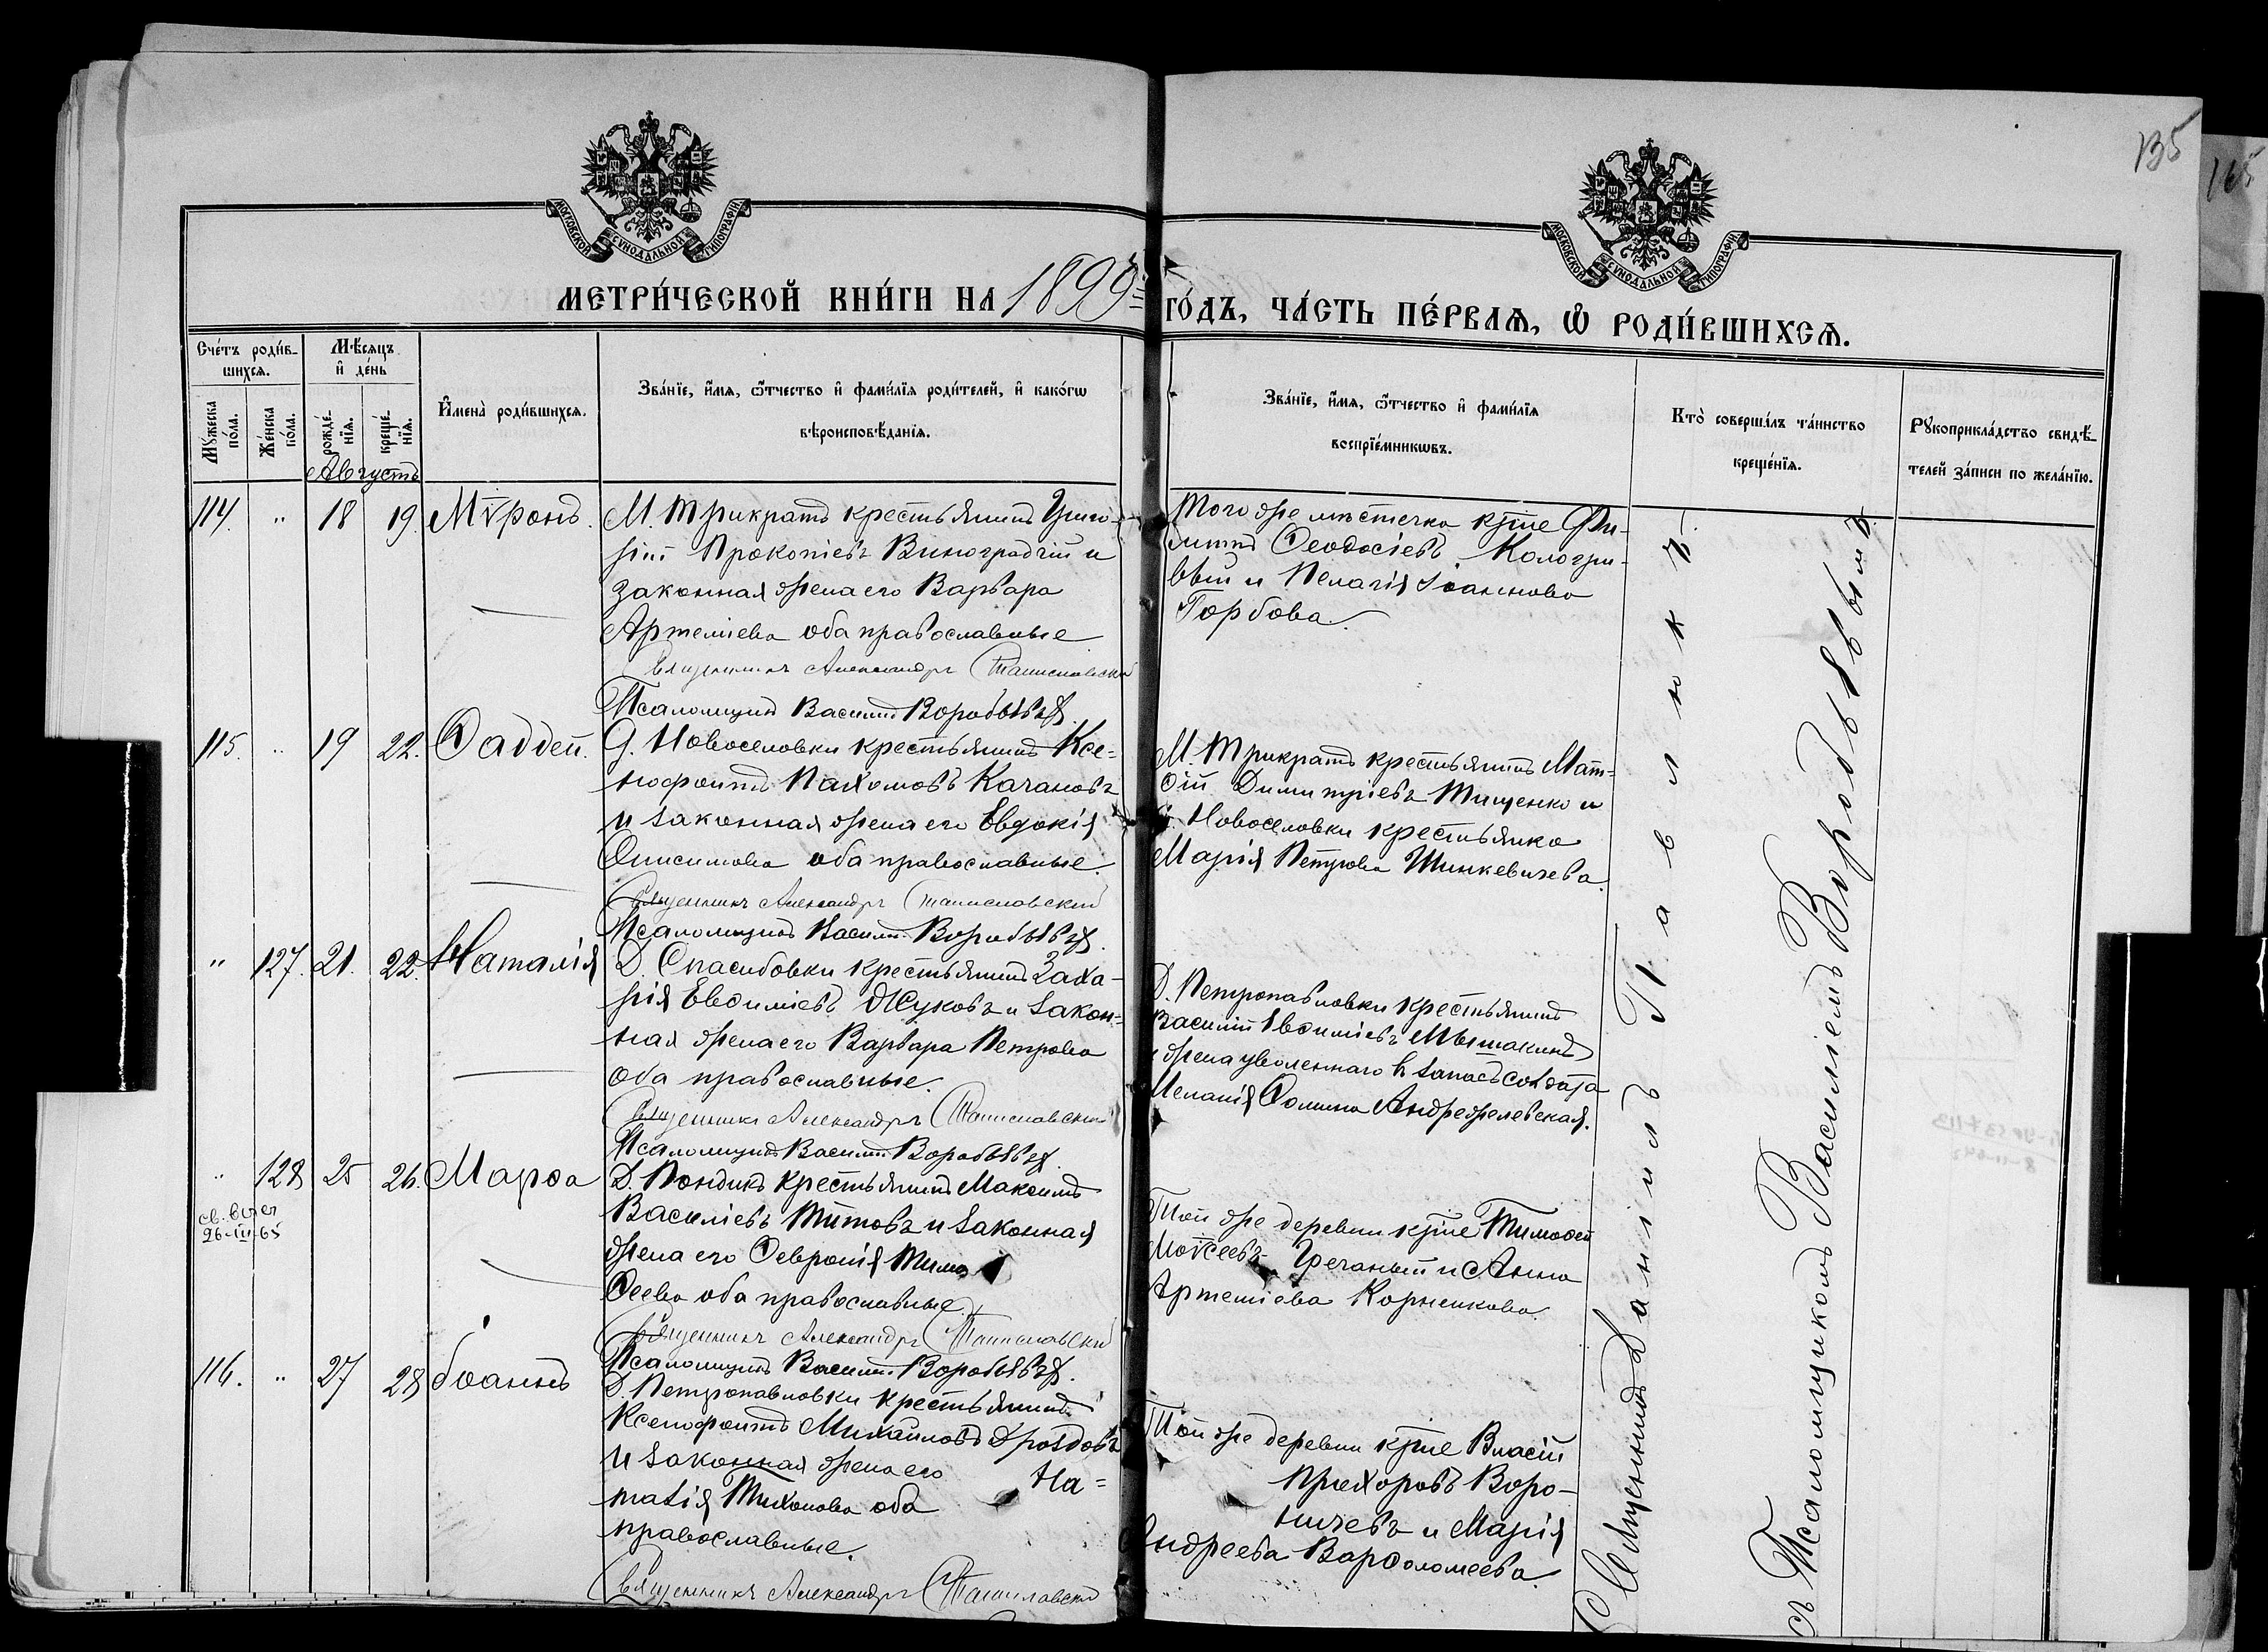 135
165
МОСКОВСКОЙ СѴНОДАЛЬНОЙ ТИПОГРАФІИ.
МОСКОВСКОЙ СѴНОДАЛЬНОЙ ТИПОГРАФІИ.
МЕТРИ́ЧЕСКОЙ КНИ́ГИ НА 1899й
ГО́ДЪ, ЧА́СТЬ ПЕ́РВАѦ, Ѽ РОДИ́ВШИХСѦ.
Сче́тъ роди́в-
шихсѧ.
Мѣ́сѧцъ
и҆ де́нь
Мꙋ́жеска
по́ла.
Же́нска
по́ла.
рожде́-
нїѧ.
креще́-
нїѧ.
И҆мена̀ роди́вшихсѧ.
Зва́нїе, и҆́мѧ, ѻ҆́тчество и҆ фами́лїѧ роди́телей, и҆ како́гѡ
вѣроисповѣ́данїѧ.
Зва́нїе, и҆́мѧ, ѻ҆́тчество и҆ фами́лїѧ
воспрїе́мникѡвъ.
Кто̀ соверша́лъ та́инство
креще́нїѧ.
Рꙋкоприкла́дство свидѣ́-
телей за́писи по жела́нїю.
Августъ
114. " 18 19. Мѵронъ.
М. Трикратъ крестьянинъ Григо-
рій Прокопіевъ Виноградчій и
законная жена его Варвара
Артеміева оба православные
Священникъ Александръ Танисловскій
Псаломщикъ Василій Воробьевъ.
Того же мѣстечка кр̃не Фи-
липпъ Ѳеодосіевъ Кологри-
вый и Пелагія Іоаннова
Горбова.
115. " 19 22. Ѳаддей.
Д. Новоселовки крестьянинъ Ксе-
нофонтъ Пахомовъ Качановъ
и законная жена его Евдокія
Онисимова оба православные.
Священникъ Александръ Танисловскій
Псаломщикъ Василій Воробьевъ.
М. Трикратъ крестьянинъ Мат-
ѳій Димитріевъ Тищенко и
д. Новоселовки крестьянка
Марія Петрова Шинкевичева.
" 127. 21. 22. Наталія
Д. Спасибовки крестьянинъ Заха-
рія Евѳиміевъ Жуковъ и закон-
ная жена его Варвара Петрова
оба православные.
Священникъ Александръ Танисловскій
Псаломщикъ Василій Воробьевъ.
Д. Петропавловки крестьянинъ
Василій Евѳиміевъ Мышакинъ
и жена уволеннаго въ запасъ солдата
Меланія Ѳомина Андрежелевская.
" 128 25 26. Марѳа
св. выел
26-III-65
Д. Пондикъ крестьянинъ Максимъ
Василіевъ Титовъ и законная
жена его Ѳевронія Тимо
ѳеева оба православные.
Священникъ Александръ Танисловскій
Псаломщикъ Василій Воробьевъ.
Той же деревни кр̃не Тимоѳей
Моѵсеевъ Гречаный и Анна
Артеміева Корненкова.
116. " 27 28 Іоаннъ
Д. Петропавловки крестьянинъ
Ксенофонтъ Михайловъ Дроздовъ
и законная жена его На-
талія Тихонова оба
православные.
Священникъ Александръ Танисловскій
Той же деревни кр̃не Власій
Прохоровъ Воро-
ничевъ и Марія
Андреева Варѳоломеева.
Священникъ Даніилъ Павлюкъ
съ Псаломщикомъ Василіемъ Воробьевымъ.